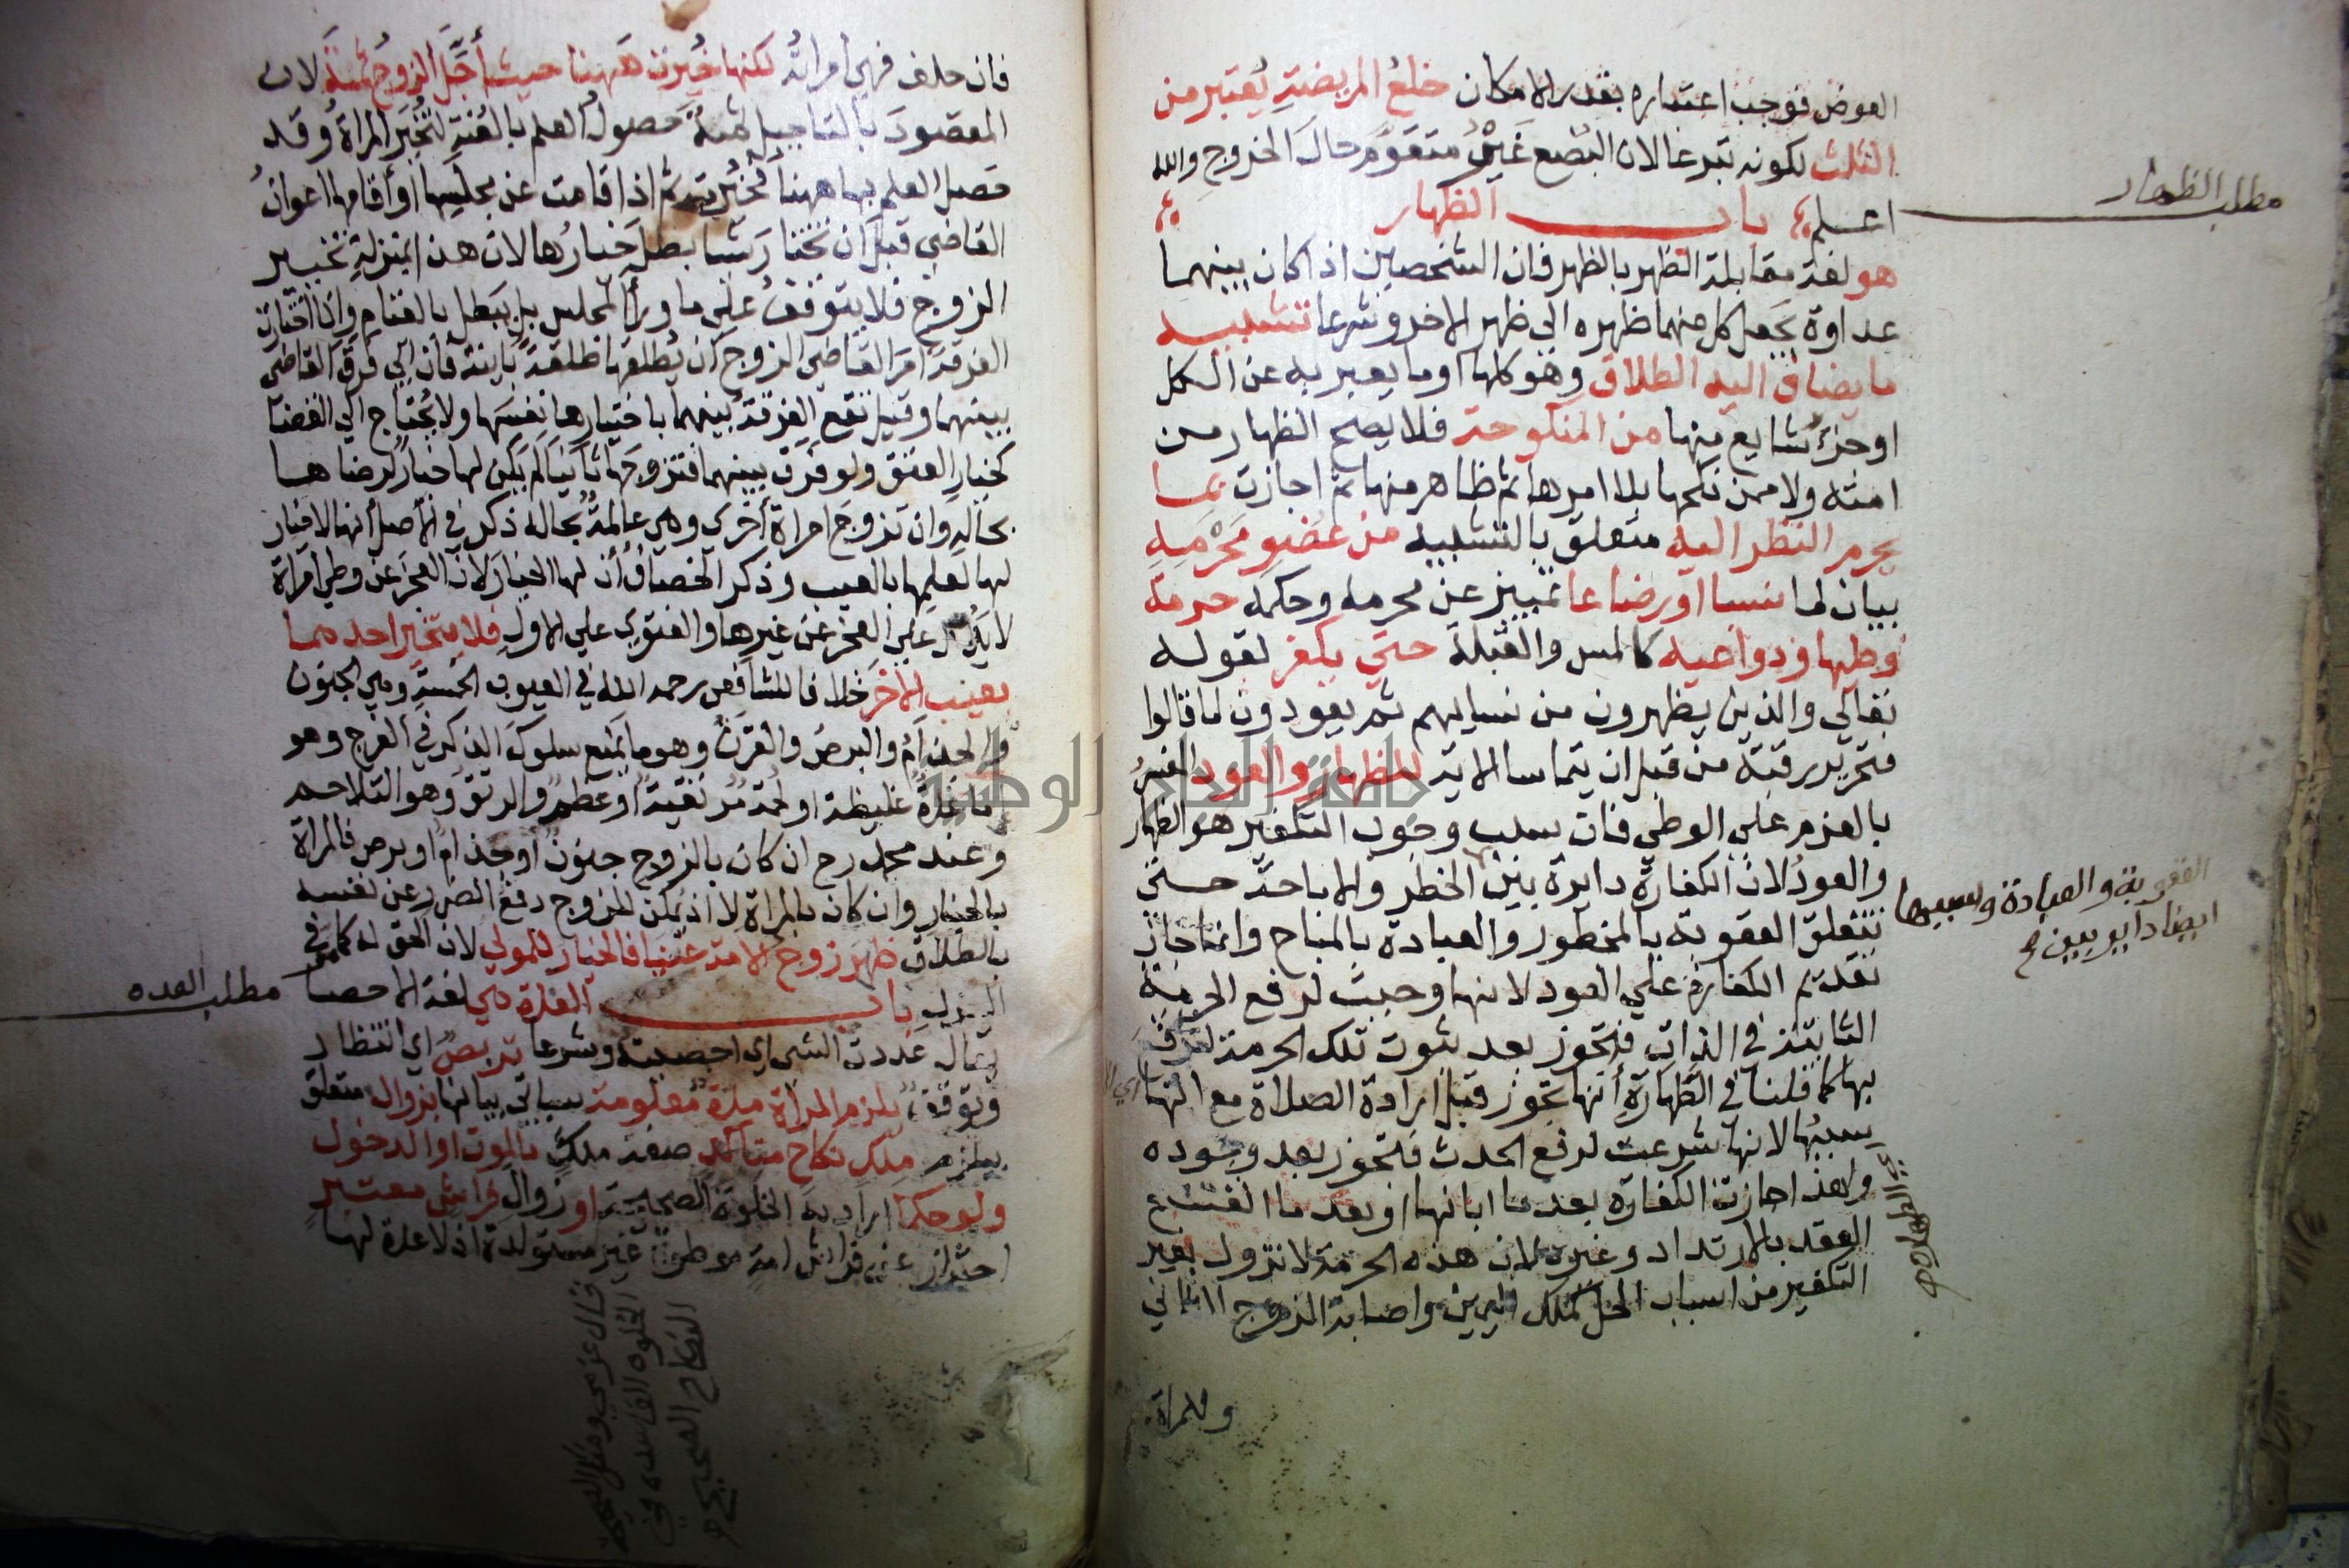 العوض فوجب اعتباره بقدر الامكان خلعُ المريضةِ يُعتبر من
الثلث لكونه تبرعا لان البُضع غير متقوم حال الخروج والله
اعلم باب الظهار
مطلب الظهار
هو لغة مقابلة الظهر بالظهر فان الشخصين اذا كان بينهما
عداوة يجعل كل منهما ظهره الى ظهر الاخر وشرعا تشبيه
ما يضاف اليه الطلاق وهو كلها او ما يعبر به عن الكل
او جزءٌ شايع منها من المنكوحة فلا يصح الظهار من
امته ولا ممن نكحها بلا امرها ثم ظاهر منها ثم اجازت بما
يحرم النظر اليه متعلق بالتشبيه من عضو محرمه
بيان لما نسبا او رضاعا تمييز عن محرمه وحكمه حرمة
وطيها ودواعيه كالمس والقبلة حتى يكفر لقوله
تعالى والذين يظهرون من نسايهم ثم يعودون لما قالوا
فتحرير رقبة من قبل ان يتماسا الاية للظهار والعود
بالعزم على الوطى فان سبب وجوب التكفير هو الظهار
والعودُ لان الكفارة دايرة بين الخطر والاباحة حتى
تتعلق العقوبة بالمحظور والعبادة بالمباح وانما جاز
العقوبة والعبادة وسببها
ايضا داير بين
تقديم الكفارة على العود لانها وجبت لرفع الحرمة
الثابتة في الذات فتجوز بعد ثبوت تلك الحرمة لترفع
بها كما قلنا في الطهارة أنها تجوز قبل ارادة الصلاة مع انها
سببها لانها شرعت لرفع الحدث فتجوز بعد وجوده
ولهذا جازت الكفارة بعد ما ابانها او بعد ما انفسخ
العقد بالارتداد وغيره لان هذه الحرمة لا تزول بغير
التكفير من اسباب الحل كملك اليمين واصابة الزوج الثاني
وللمراة
فان حلف فهي امراته لكنها خُيرت ههنا حيث أجّل الزوج سنة لان
المقصودَ بالتاجيل ثمة حصول العلم بالعنة لتخير المراة وقد
حصل العلم بها ههنا فخُيرت ثم اذا قامت عن مجلسها او أقامها اعوان
القاضي قبل ان تختار شيا بطل خيارها لان هذا بمنزلة تخيير
الزوج فلا يتوقفُ على ما ورا المجلس بل يبطل بالقيام وان اختارت
الفرقة امر القاضي الزوج ان يُطلقها طلقة باينة فان ابي فرق القاضي
بينهما وقيل تقع الفرقة بينهما باختيارها نفسَها ولا يُحتاج الي القضا
كخيار العتق ولو فرق بينهما فتزوجها ثانيا لم يكن لها خيار لرضاها
بحاله وان تزوج امراة أخري وهي عالمة بحاله ذكر في الاصل أنها لا خيار
لها لعلمها بالعيب وذكر الخصاف أن لها الخيار لان العجز عن وطي امراة
لا يدل علي العجز عن غيرها والفتوي علي الاول فلا يتخير احدهما
بعيب الاخر خلافا للشافعي رحمه الله في العيوب الخمسة وهي الجنون
والجذام والبرص والقرن وهو ما يمنع سلوك الذكر في الفرج وهو
اما غدة غليظة او لحمة مرتقية او عظم والرتق وهو التلاحم
وعند محمد رح ان كان بالزوج جنون او جذام او برص فالمراة
بالخيار وان كان بالمراة لا اذ يمكن للزوج دفع الضرر عن نفسه
بالطلاق ظهر زوج الامة عنينا فالخيار للمولي لان الحق له كما مر في
العزل باب العدة هي لغة الاحصا
مطلب العده
يقال عددت الشي اي احصيته وشرعا تربص اي انتظار
وتوقف يلزم المراة مدة معلومة سياتي بيانها بزوال متعلق
بيلزم ملك نكاح متاكد صفة ملك بالموت او الدخول
ولو حكما اراد به الخلوة الصحيحة او زوال فراش معتبر
احتراز عن فراش امة موطوة غير مستولدة اذ لا عدة لها